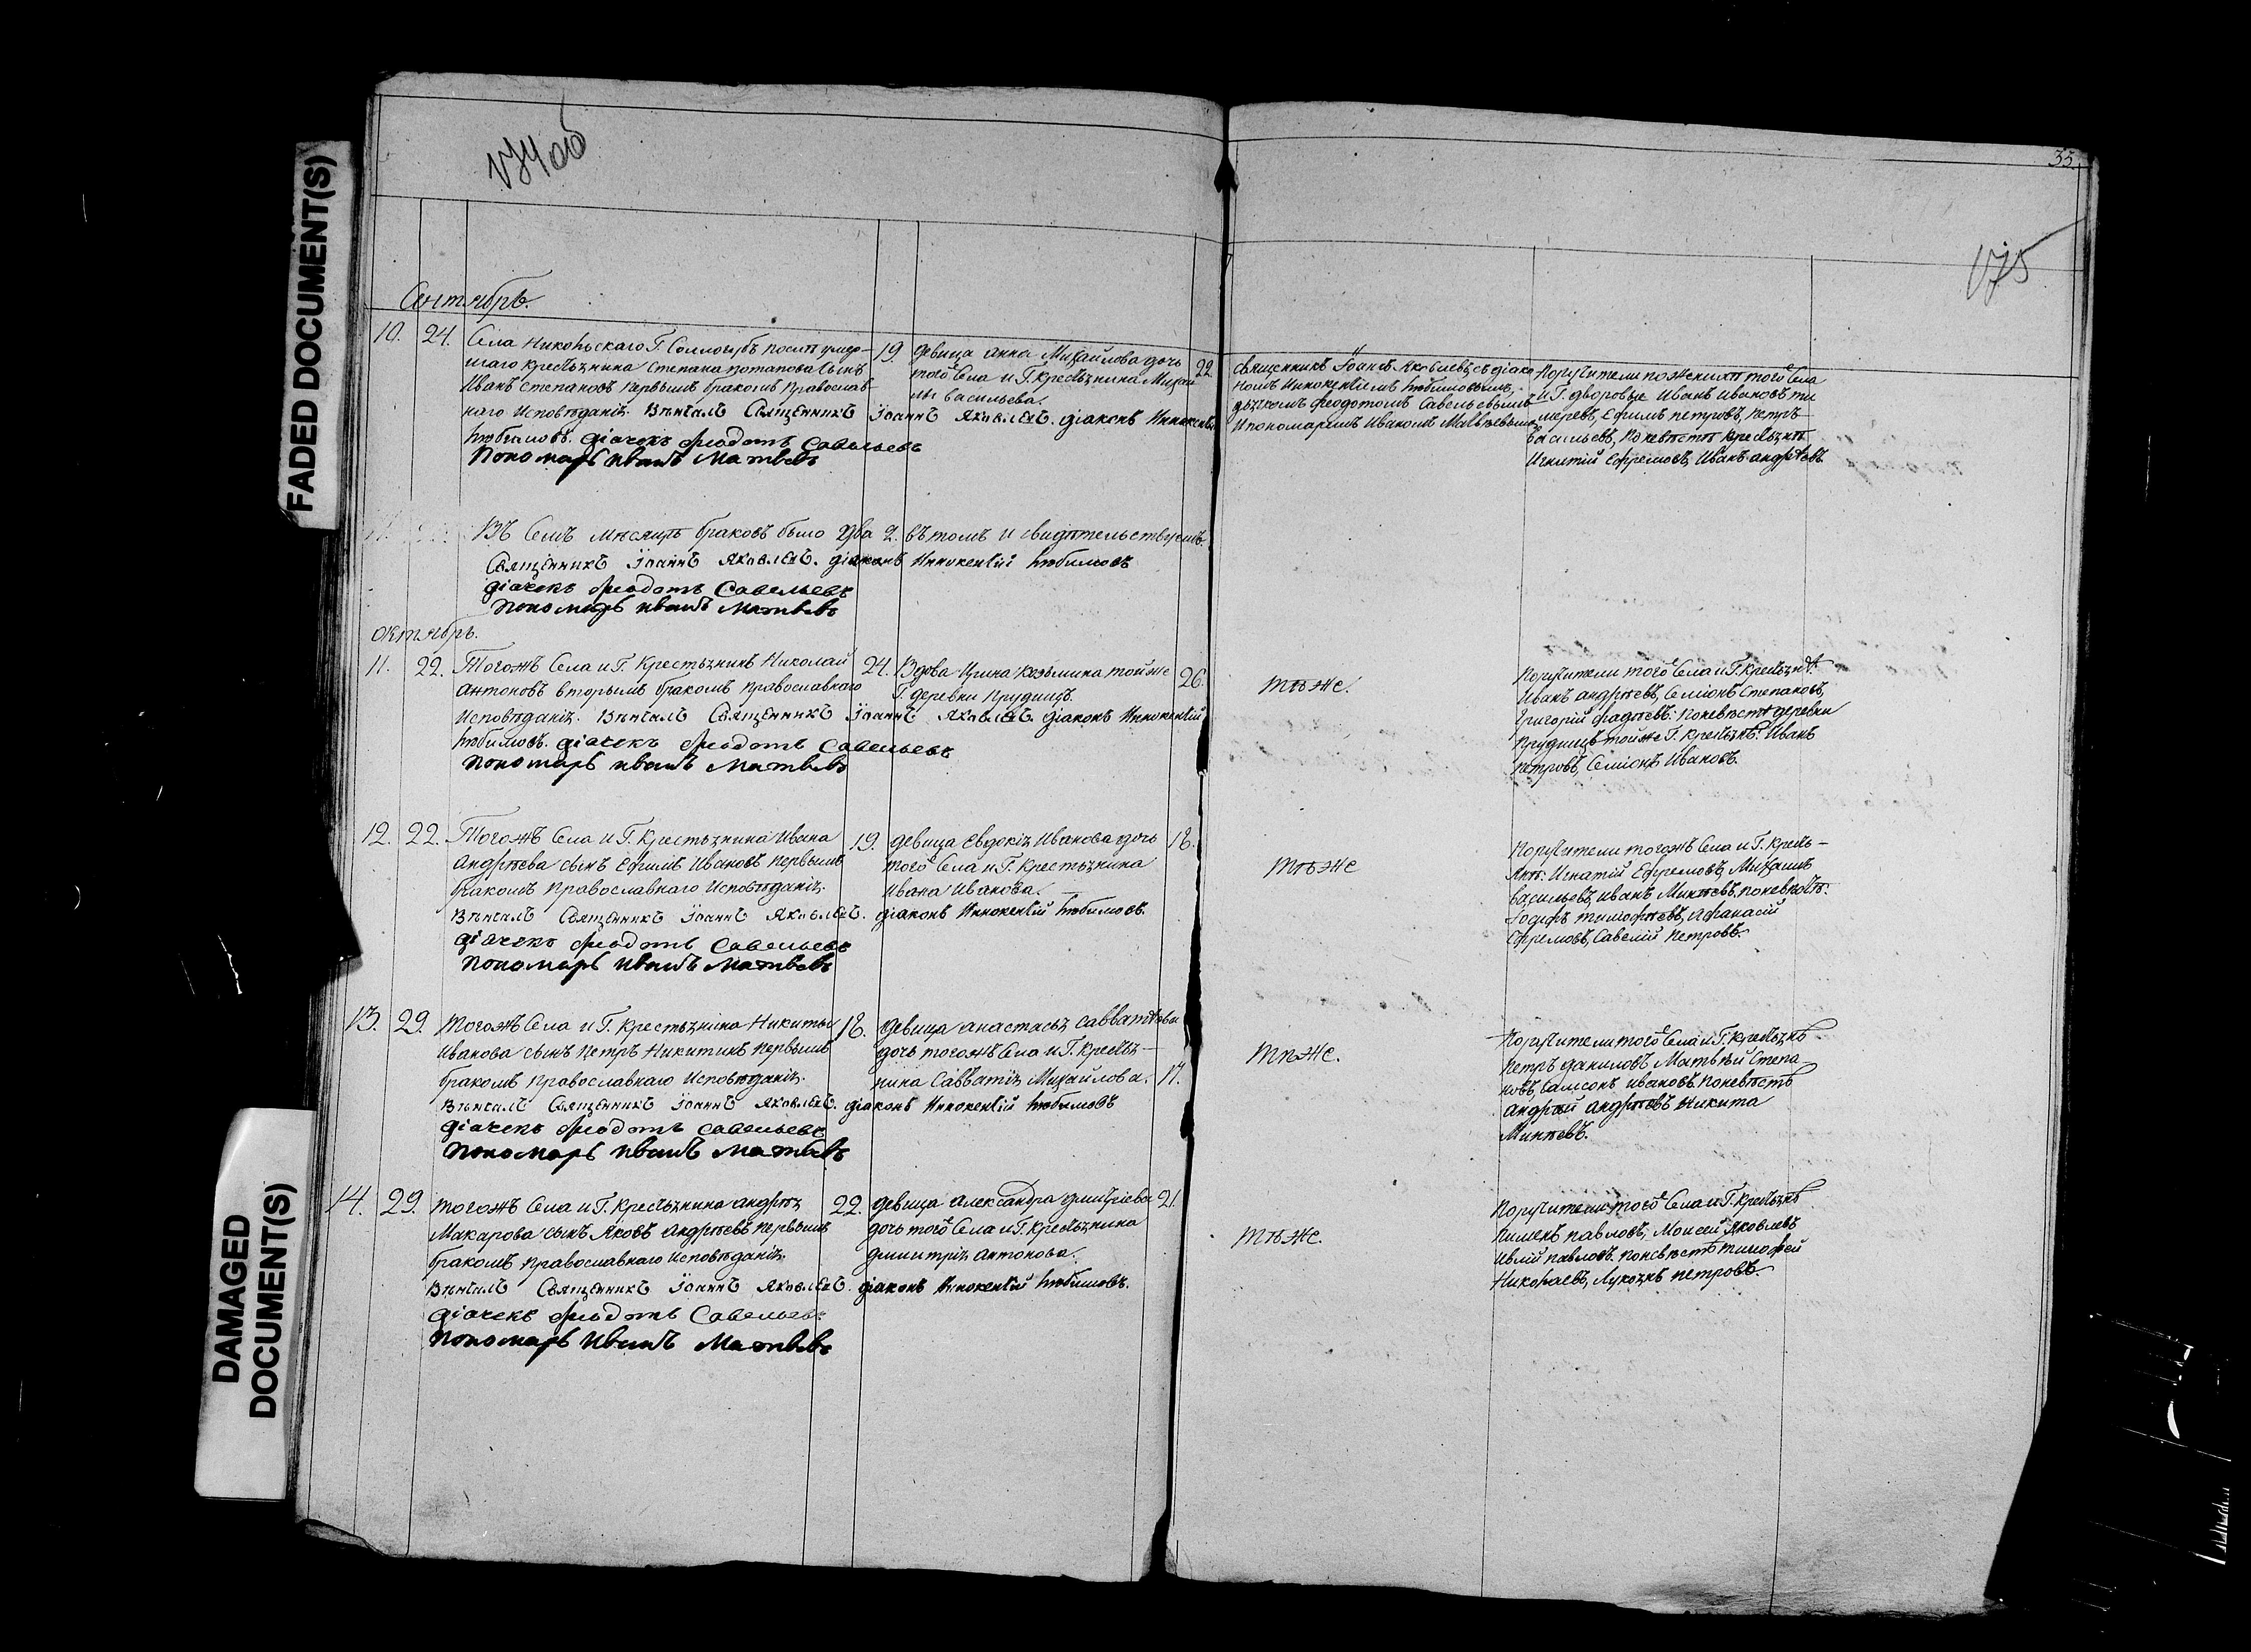 FADED DOCUMENT(S)
DAMAGED
DOCUMENT(S)
174об
35.
175
Сентябрь.
10. 24. Села Никольскаго Г. Соллогубъ послѣ умер-
шаго крестьянина Степана Потапова сынъ
Иванъ Степановъ первымъ бракомъ православ-
наго исповѣданія. Вѣнчалъ Священникъ Іоаннъ Яковлевъ. Діаконъ Иннокентій
Любимовъ. Діачекъ Ѳеодотъ Савельевъ
Пономарь Иванъ Матвѣевъ
19.
девица Анна Михайлова дочь
того Села и Г. крестьянина Михай
лы Васильева.
22.
Священникъ Іоаннъ Яковлевъ, съ діако
номъ Иннокентіемъ Любимовымъ,
дьячкомъ Феодотомъ Савельевымъ
и пономаремъ Иваномъ Матвѣевымъ.
Поручители по женихѣ того Села
и Г. дворовые Иванъ Ивановъ Ти
меревъ, Ефимъ Петровъ, Петръ
Васильевъ, по невѣстѣ крестьянѣ
Игнатій Ефремовъ, Иванъ Андрѣевъ.
Въ семъ мѣсяцѣ браковъ было два 2. въ томъ и свидѣтельствуемъ.
Священникъ Іоаннъ Яковлевъ. Діаконъ Иннокентій Любимовъ
Діачекъ Ѳеодотъ Савельевъ
Пономарь Иванъ Матвѣевъ
Октябрь.
11. 22. Тогожъ Села и Г. крестьянинъ Николай
Антоновъ вторымъ бракомъ православнаго
исповѣданія. Вѣнчалъ Священникъ Іоаннъ Яковлевъ. Діаконъ Иннокентій
Любимовъ. Діачекъ Ѳеодотъ Савельевъ
Пономарь Иванъ Матвѣевъ
24.
Вдова Ирина Козьмина той же
Г. деревни Прудищъ.
26.
Тѣже.
Поручители того Села и Г. крестьянѣ
Иванъ Андрѣевъ, Семіонъ Степановъ,
Григорій Фадѣевъ: по невѣстѣ деревни
Прудищъ той же Г. крестьянѣ: Иванъ
Петровъ, Семіонъ Ивановъ.
12. 22. Тогожъ Села и Г. крестьянина Ивана
Андрѣева сынъ Ефимъ Ивановъ первымъ
бракомъ православнаго исповѣданія.
Вѣнчалъ Священникъ Іоаннъ Яковлевъ. Діаконъ Иннокентій Любимовъ.
Діачекъ Ѳеодотъ Савельевъ
Пономарь Иванъ Матвѣевъ
19.
девица Евдокія Иванова дочь
того Села и Г. крестьянина
Ивана Иванова.
18.
Тѣже
Поручители тогожъ Села и Г. кресть-
янѣ: Игнатій Ефремовъ, Михаилъ
Васильевъ, Иванъ Минѣевъ, по невѣстѣ:
Іосифъ Тимофѣевъ, Афанасій
Ефремовъ, Савелій Петровъ.
13. 29. Тогожъ Села и Г. крестьянина Никиты
Иванова сынъ Петръ Никитинъ первымъ
бракомъ православнаго исповѣданія.
Вѣнчалъ Священникъ Іоаннъ Яковлевъ. Діаконъ Иннокентій Любимовъ
Діачекъ Ѳеодотъ Савельевъ
Пономарь Иванъ Матвѣевъ
18.
девица Анастасья Савватѣева
дочь тогожъ Села и Г. крестья-
нина Савватія Михайлова.
17.
Тѣже.
Поручители того Села и Г. крестьянѣ
Петръ Даниловъ, Матвѣй Степа-
новъ, Самсонъ Ивановъ. По невѣстѣ
Андрѣй Андрѣевъ Никита
Минѣевъ.
14. 29. Тогожъ Села и Г. крестьянина Андрѣя
Макарова сынъ Яковъ Андрѣевъ первымъ
бракомъ православнаго исповѣданія.
Вѣнчалъ Священникъ Іоаннъ Яковлевъ. Діаконъ Иннокентій Любимовъ.
Діачекъ Ѳеодотъ Савельевъ
Пономарь Иванъ Матвѣевъ
22.
девица Александра Дмитріева
дочь того Села и Г. крестьянина
Димитрія Антонова.
21.
Тѣже.
Поручители того Села и Г. крестьянѣ
Пименъ Павловъ, Моисей Яковлевъ
Павловъ. По невѣстѣ Тимофей
Николаевъ, Лукоянъ Петровъ.